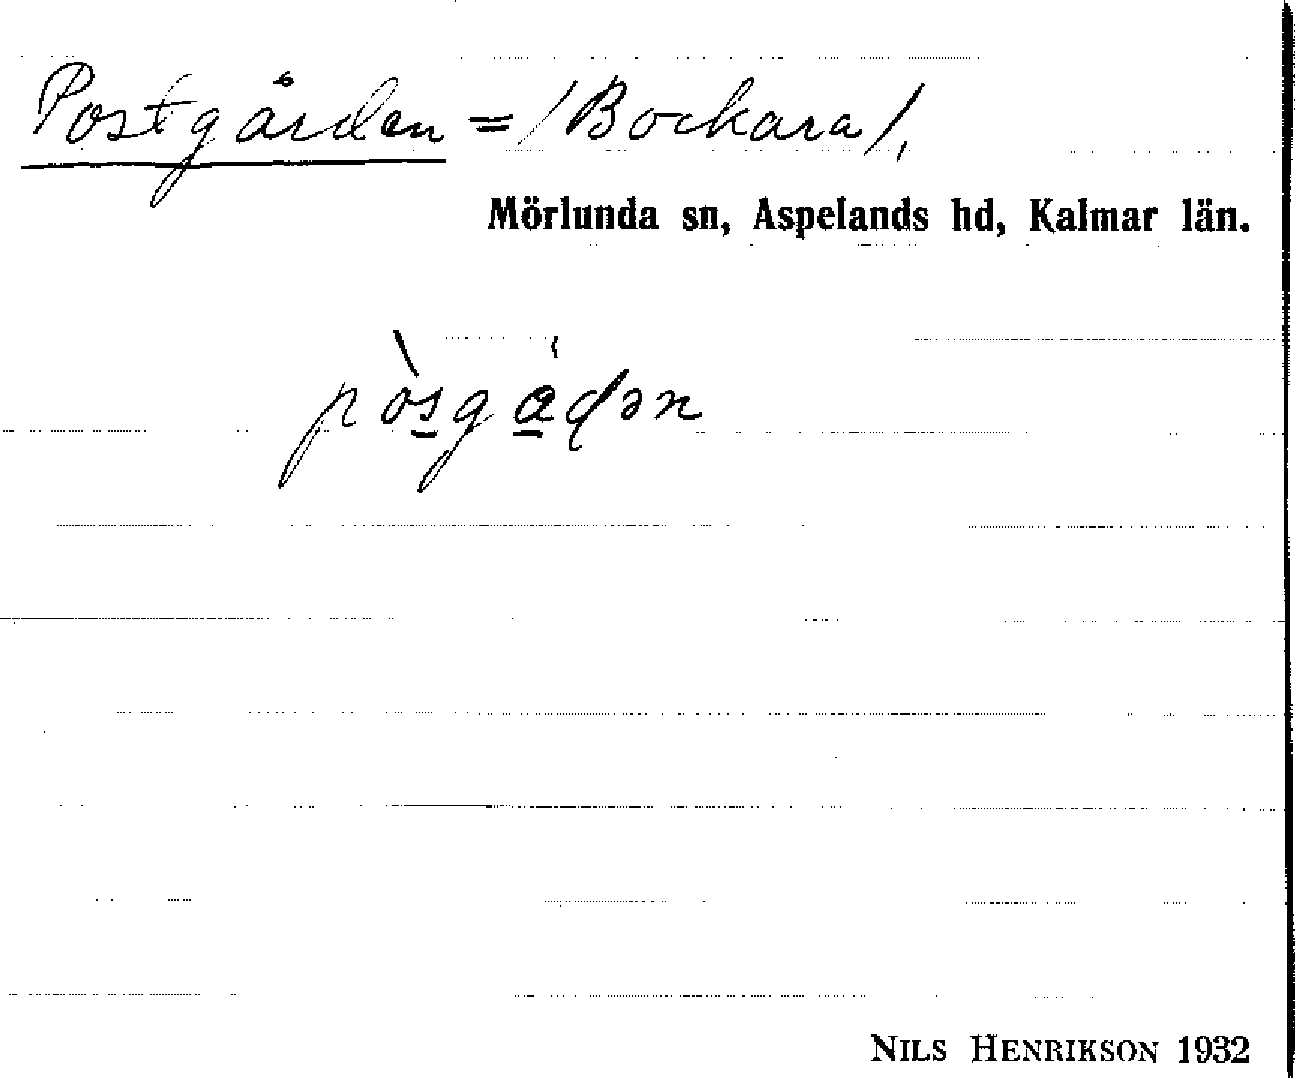 Postgården = /Bockara/,
Mörlunda sn, Aspelands hd, Kalmar län.
pòsgádən
NILS HENRIKSON 1932